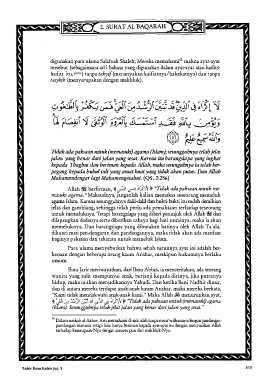 2. SURAT AL BAQARAH
digunakan para ulama Salafush Shaleh; Mereka memahami makna ayat-ayat
tersebut (sebagaimana arti bahasa yang digunakan dalam ayat-ayat atau hadits-
hadits itu,) tanpa takyif (menanyakan kaifiatnya/hakekatnya) dan tanpa
tasybih (menyerupakan dengan makhluk).
لَا إِكْرَاهَ فِي الدِّينِ قَد تَّبَيَّنَ الرُّشْدُ مِنَ الْغَيِّ فَمَن يَكْفُرْ بِالطَّاغُوتِ
وَيُؤْمِن بِاللَّهِ فَقَدِ اسْتَمْسَكَ بِالْعُرْوَةِ الْوُثْقَىٰ لَا انفِصَامَ لَهَا
وَاللَّهُ سَمِيعٌ عَلِيمٌ
Tidak ada paksaan untuk (memasuki) agama (Islam); sesungguhnya telah jelas
jalan yang benar dari jalan yang sesat. Karena itu barangsiapa yang ingkar
kepada Thaghut dan beriman kepada Allah, maka sesungguhnya ia telah ber-
pegang kepada buhul tali yang amat kuat yang tidak akan putus. Dan Allah
Mahamendengar lagi Mahamengetahui. (QS. 2:256)
Allah berfirman, "Tidak ada paksaan untuk me-
masuki agama." Maksudnya, janganlah kalian memaksa seseorang memeluk
agama Islam. Karena sesungguhnya dalil-dalil dan bukti-bukti itu sudah demikian
jelas dan gamblang, sehingga tidak perlu ada pemaksaan terhadap seseorang
untuk memeluknya. Tetapi barangsiapa yang diberi petunjuk oleh Allah dan
dilapangkan dadanya serta diberikan cahaya bagi hati nuraninya, maka ia akan
memeluknya. Dan barangsiapa yang dibutakan hatinya oleh Allah Ta'ala,
dikunci mati pendengaran dan pandangannya, maka tidak akan ada manfaat
baginya paksaan dan tekanan untuk memeluk Islam.
Para ulama menyebutkan bahwa sebab turunnya ayat ini adalah ber-
kenaan dengan beberapa orang kaum Anshar, meskipun hukumnya berlaku
umum.
Ibnu Jarir meriwayatkan, dari Ibnu Abbas, ia menceritakan, ada seorang
wanita yang sulit mempunyai anak, berjanji kepada dirinya, jika putranya
hidup, maka ia akan menjadikannya Yahudi. Dan ketika Bani Nadhir diusir,
dan di antara mereka terdapat anak-anak kaum Anshar, maka mereka berkata,
"Kami tidak mendakwahi anak-anak kami." Maka Allah menurunkan ayat,
"Tidak ada paksaan untuk (memasuki) agama
(Islam). Sesungguhnya telah jelas jalan yang benar dari jalan yang sesat."
Tafsir Ibnu Katsir Juz 3